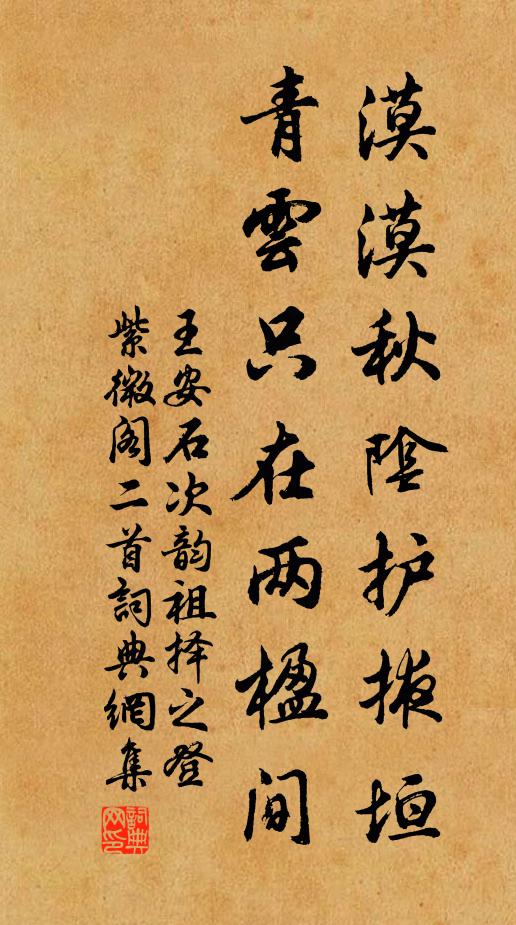 漠漠秋陰护掖垣
青雲只在两楹间
王安石次韵祖择之登
紫微阁二首詞典網集
詞典网印